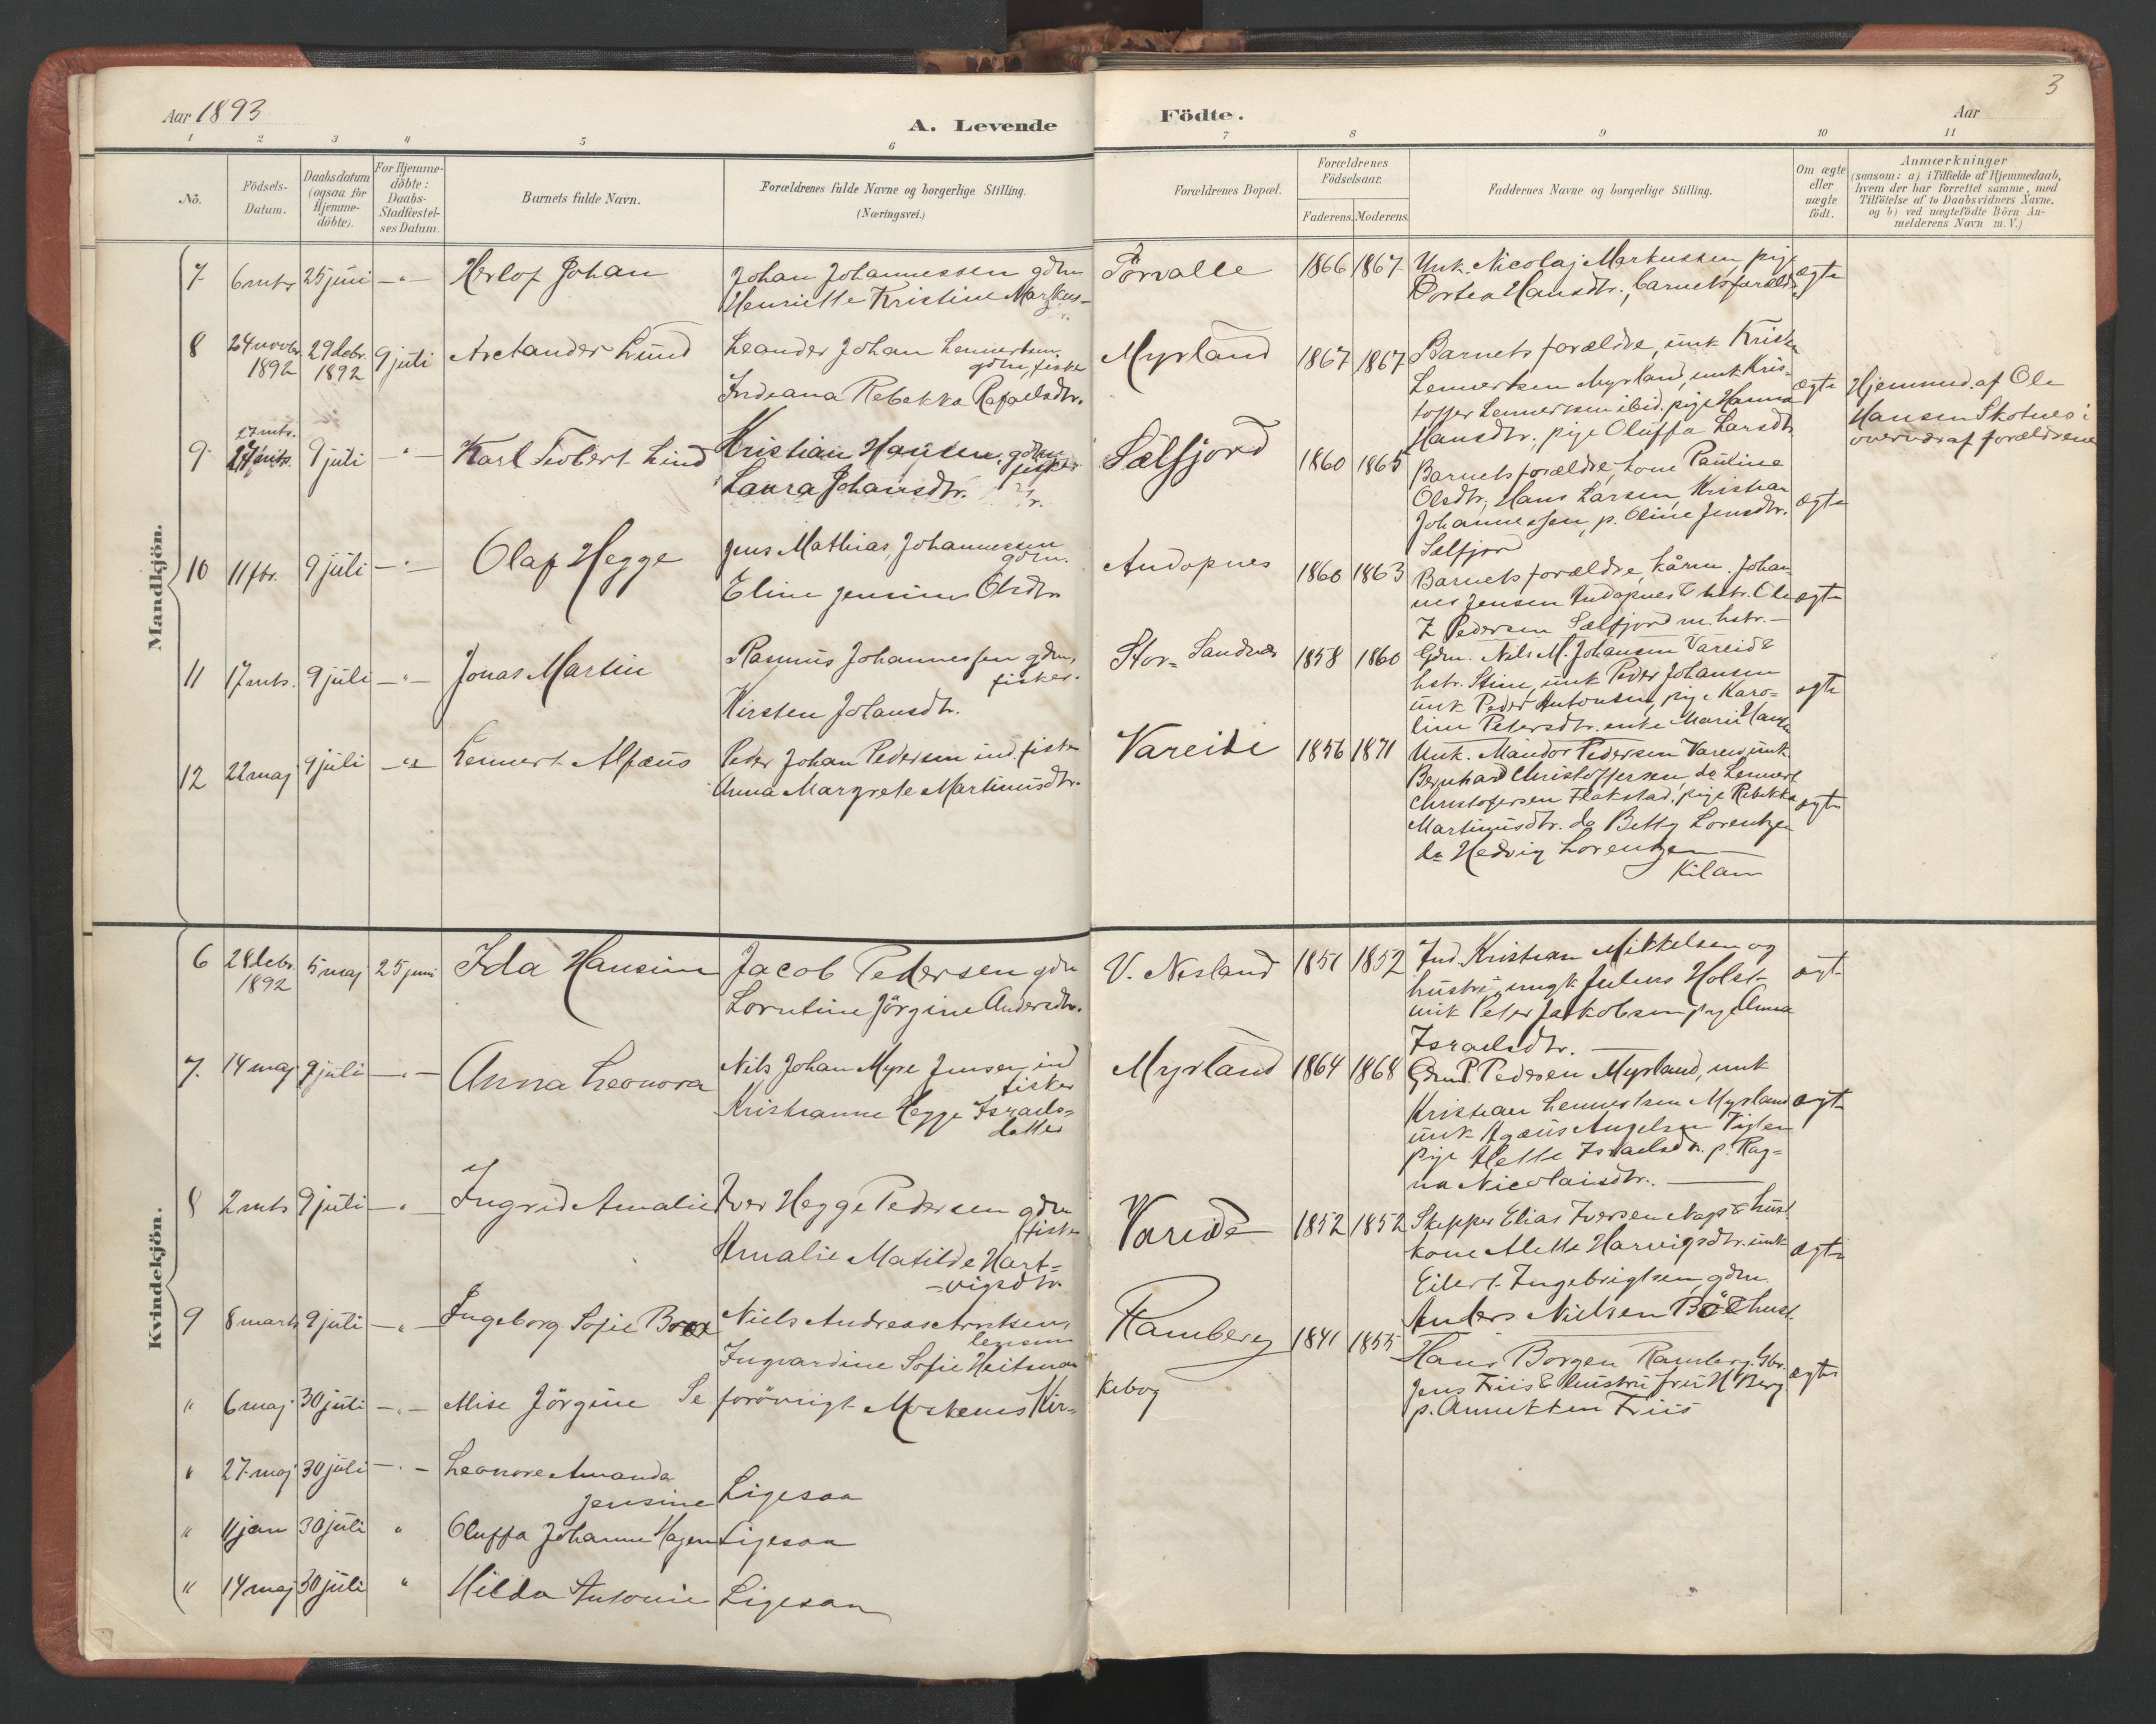 Aar 1893
A. Levende
Födte.
Aar
3
1 2 3 4 5 6 7 8 9 10 11
No.
Födsels-Datum.
Daabsdatum (ogsaa for Hjemme-döbte).
For Hjemme-döbte: Daabs-Stadfæstel-ses Datum.
Barnets fulde Navn.
Forældrenes fulde Navne og borgerlige Stilling.
(Næringsvei.)
Forældrenes Bopæl.
Forældrenes Födselsaar.
Faderens. Moderens.
Faddernes Navne og borgerlige Stilling.
Om ægte eller uægte födt.
Anmærkninger
(saasom: a) i Tilfælde af Hjemmedaab,
hvem der har forrettet samme, med
Tilföielse af to Daabsvidners Navne,
og b) ved uægtefödte Börn An-
melderens Navn m. V.)
Mandkjön.
7 6 mts 25 juni -"- Herlof Johan
Johan Johannessen gdm
Henriette Kristine Markus-
Törvalle 1866 1867
Unk. Nicolaj Markussen, pige
Dortea Hansdtr., barnets forældre
ægte
8 24 novbr. 1892 29 debr. 1892 9 juli Arctander Lund
Leander Johan Lennertsen
gdm, fisker
Indeana Rebekka Rafaelsdtr.
Myrland 1867 1867
Barnets forældre, unk Kristen
Lennertsen Myrland, unk Kris-
toffer Lennertsen ibid. pige Hanna
Hansdtr., pige Oluffa Larsdtr.
ægte
Hjemmed. af Ole
Hansen Skotnes i
overvær af forældrene
9 27 mts. 9 juli -"- Karl Hobert Lind
Kristian Hansen, gdm
fisker
Laura Johansdtr.
Sælfjord 1860 1865
Barnets forældre, kone Pauline
Olsdtr, Hans Larsen, Kristian
Johannessen, p. Oline Jensdtr.
Sælfjord
ægte
10 11 fbr. 9 juli -"- Olaf Hegge
Jens Mathias Johannessen
gdm.
Eline Jensine Olsdtr
Andopnes 1860 1863
Barnets forældre, kårm. Johan
nes Jensen Andopnes & hstr. Ole
Z Pedersen Sælfjord m. hstr. -
ægte
11 17 mts. 9 juli -"- Jonas Martin
Rasmus Johannessen gdm,
fisker.
Kirsten Johansdtr.
Stor-Sandnes 1858 1860
Gdm. Nils M. Johansen Vareid &
hstr. Stine, unk Peder Johansen
unk Peder Antonsen, pige Karo-
line Petersdtr. enke Marie Hans
ægte
12 22 maj 9 juli -"- Lennert Alfæus
Peder Johan Pedersen ind. fisker
Anna Margrete Martinusdtr.
Vareide 1856 1871
Unk. Mandor Pedersen Vareid unk.
Bernhard Christoffersen do Lennert
Christofersen Flakstad, pige Rebekka
Martinusdtr. do Betty Lorentzen
do Hedvig Lorentzen
Kilan
ægte
Kvindekjön.
6 28 debr. 1892 5 maj 25 juni Ida Hansine
Jacob Pedersen gdm
Lorntine Jörgine Andersdtr.
V. Nesland 1851 1852
Ind Kristian Mikkelsen og
hustru, ungk Julius Holst
unk Peter Jakobsen pige Anna
Israelsdtr. -
ægt
7. 14 maj 9 juli -"- Anna Leonora
Nils Johan Myre Jensen, ind
fisker
Kristianne Hegge Israels-
datter
Myrland 1864 1868
Gdm P. Pedersen Myrland, unk
Kristian Lennertsen Myrland
unk Agæus Angelsen Viglen
pige Mette Israelsdtr. p. Rag-
na Nicolaisdtr. -
ægte
8 2 mts 9 juli -"- Ingrid Amalie
Iver Hegge Pedersen gdm
fisker
Amalie Matilde Hart-
-vigsdtr
Vareide 1852 1852
Skipper Elias Iversen Naps & hust.
kone Mette Harvigsdtr. unk
Eilert Ingebrigtsen, gdm.
Anders Nielsen Böe & hust.
ægte
9 8 marts 9 juli -"- Ingeborg Sofie Brox
Niels Andreas Arntsen,
lensm
Ingvardine Sofie Heitman
Ramberg 1841 1855
Hans Borgen Ramberg. Gbr.
Jens Friis & hustru fru H Berg
p. Annekken Friis
ægte
" 6 maj 30 juli -"- Mise Jörgine Se forövrigt Moskenes Kir-
kebog
" 27 maj 30 juli -"- Leonore Amanda
Jensine Ligesaa
" 11 jan 30 juli " Oluffa Johanne Hagen Ligesaa
" 14 maj 30 juli " Hilda Antonie Ligesaa